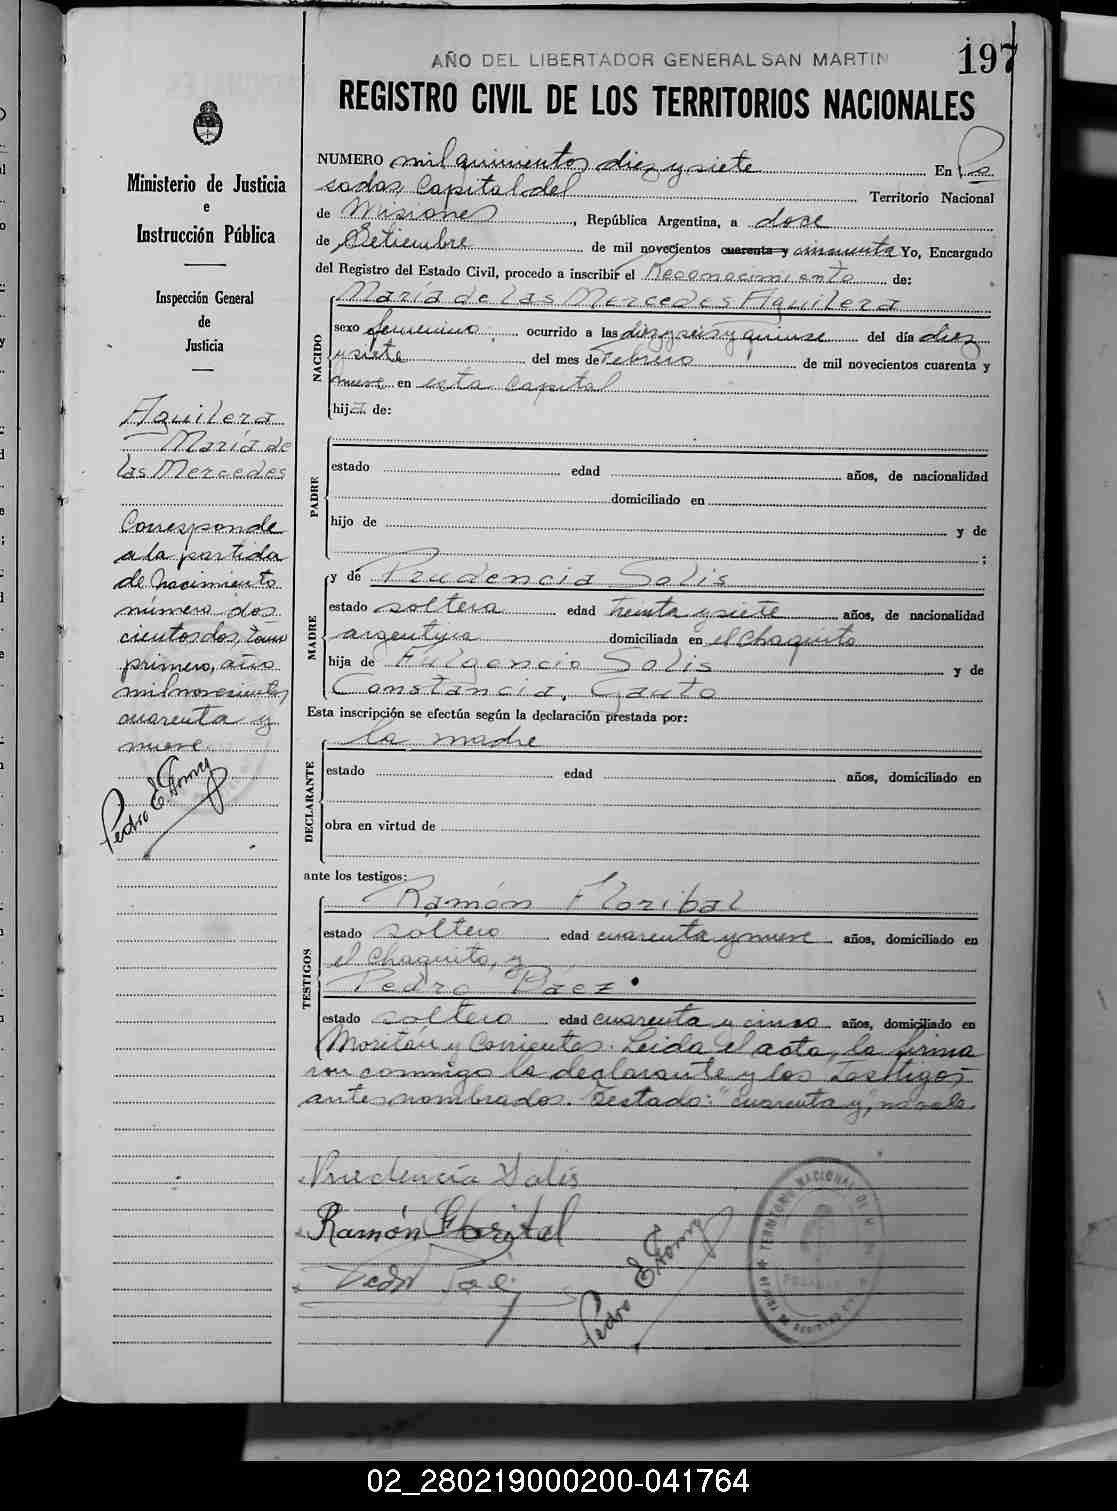 AÑO DEL LIBERTADOR GENERAL SAN MARTIN
197
REGISTRO CIVIL DE LOS TERRITORIOS NACIONALES
Ministerio de Justicia
e
Instrucción Pública
Inspección General
de
Justicia
Aguilera
María de
las Mercedes
Corresponde
a la partida
de nacimiento
número dos
cientos dos, tomo
primero, año
mil novecientos
cuarenta y
nueve.
Pedro E. Gomez
NUMERO mil quinientos diez y siete En Po
sadas Capital del Territorio Nacional
de Misiones, República Argentina, a doce
de Setiembre de mil novecientos cuarenta y cincuenta Yo, Encargado
del Registro del Estado Civil, procedo a inscribir el Reconocimiento de:
NACIDO
María de las Mercedes Aguilera
sexo femenino ocurrido a las diez y seis y quince del día diez
y siete del mes de Febrero de mil novecientos cuarenta y
nueve en esta Capital
hija de:
PADRE
estado edad años, de nacionalidad
domiciliado en
hijo de y de
;
MADRE
y de Prudencia Solis
estado soltera edad treinta y siete años, de nacionalidad
argentina domiciliada en el Chaquito
hija de Fulgencio Solis y de
Constancia, Gauto
Esta inscripción se efectúa según la declaración prestada por:
DECLARANTE
la madre
estado edad años, domiciliado en
obra en virtud de
ante los testigos:
TESTIGOS
Ramón Floribal
estado soltero edad cuarenta y nueve años, domiciliado en
el Chaquito, y
Pedro Páez
estado soltero edad cuarenta y cinco años, domiciliado en
Moritán y Corrientes. Leida el acta, la firma
ron conmigo la declarante y los Testigos
antes nombrados. Testado: "cuarenta y", no vale.
Prudencia Solis
Ramón Floribal
Pedro E. Gomez
TERRITORIO NACIONAL DE
POSADAS
02_280219000200-041764